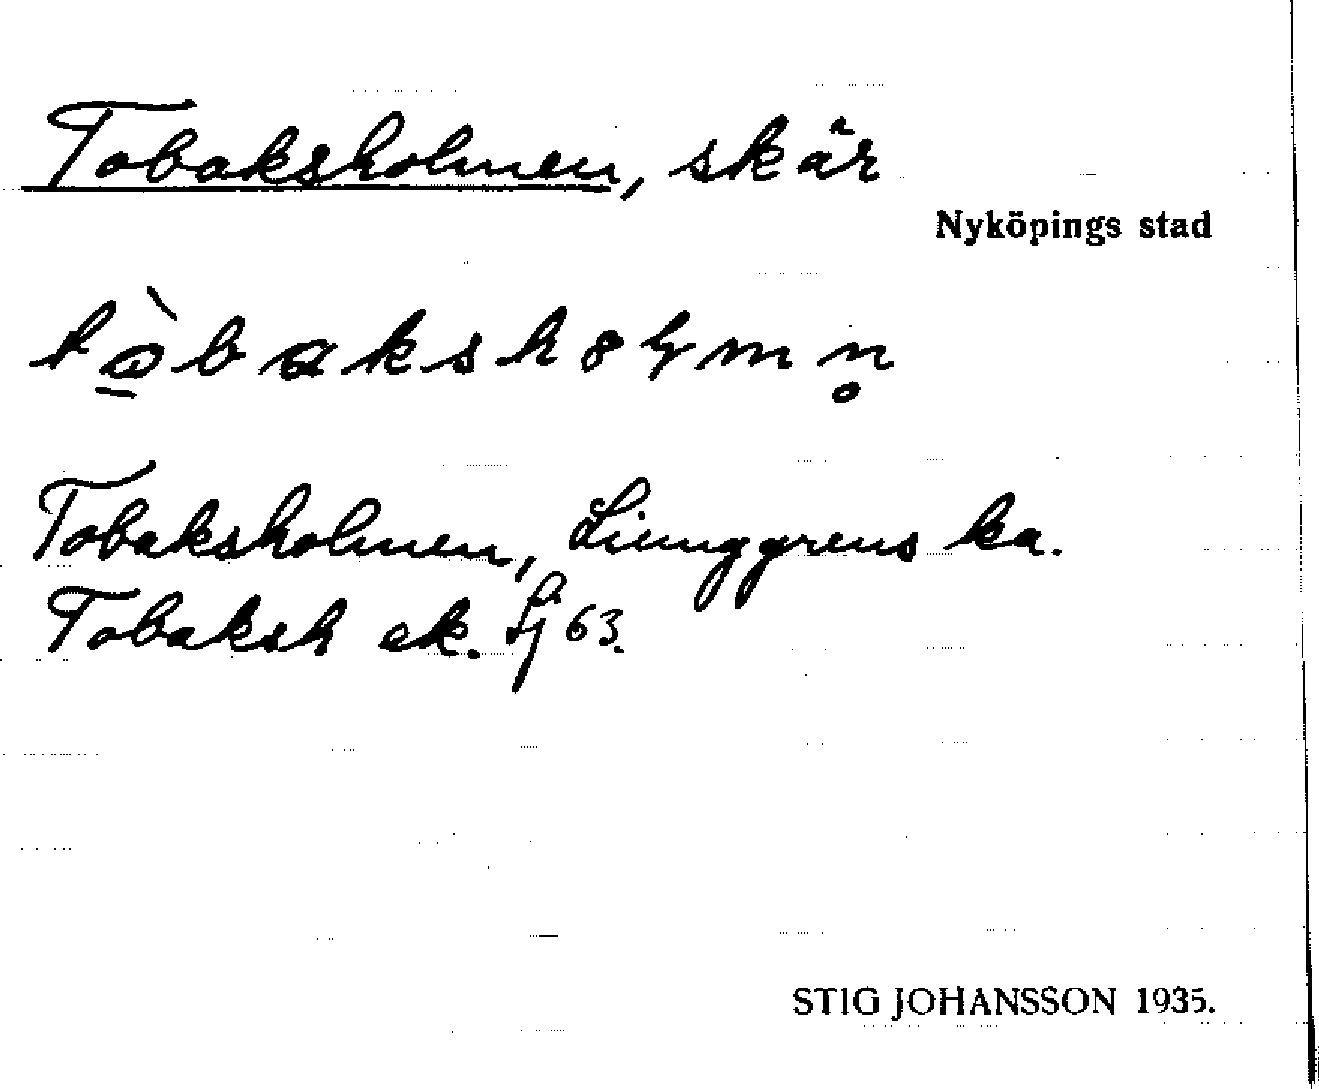 Tobaksholmen, skär
Nyköpings stad
tò̱baksholmn̥
Tobaksholmen, Liunggrens ka.
Tobaksh ek. Lj 63.
STIG JOHANSSON 1935.